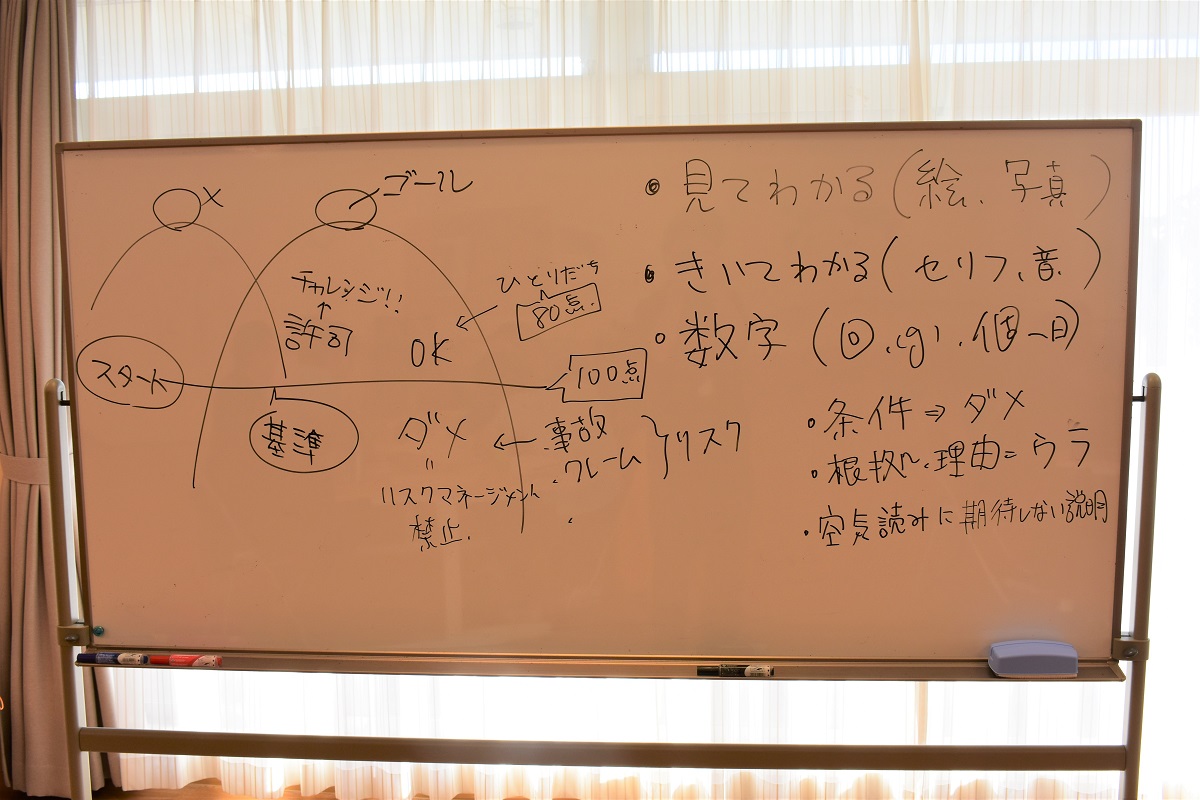 ×
ゴール
チャレンジ!!
↑
許可
OK
ひとりだち
80点.
スタート
100点
基準
ダメ ← 事故
クレーム
}リスク
〃
リスクマネージメント
禁止.
◎ 見てわかる(絵、写真)
きいてわかる(セリフ、音.)
○ 数字(回、(g)、個、日)
・条件 ⇒ ダメ
・根拠、理由=ウラ
・空気読みに期待しない説明